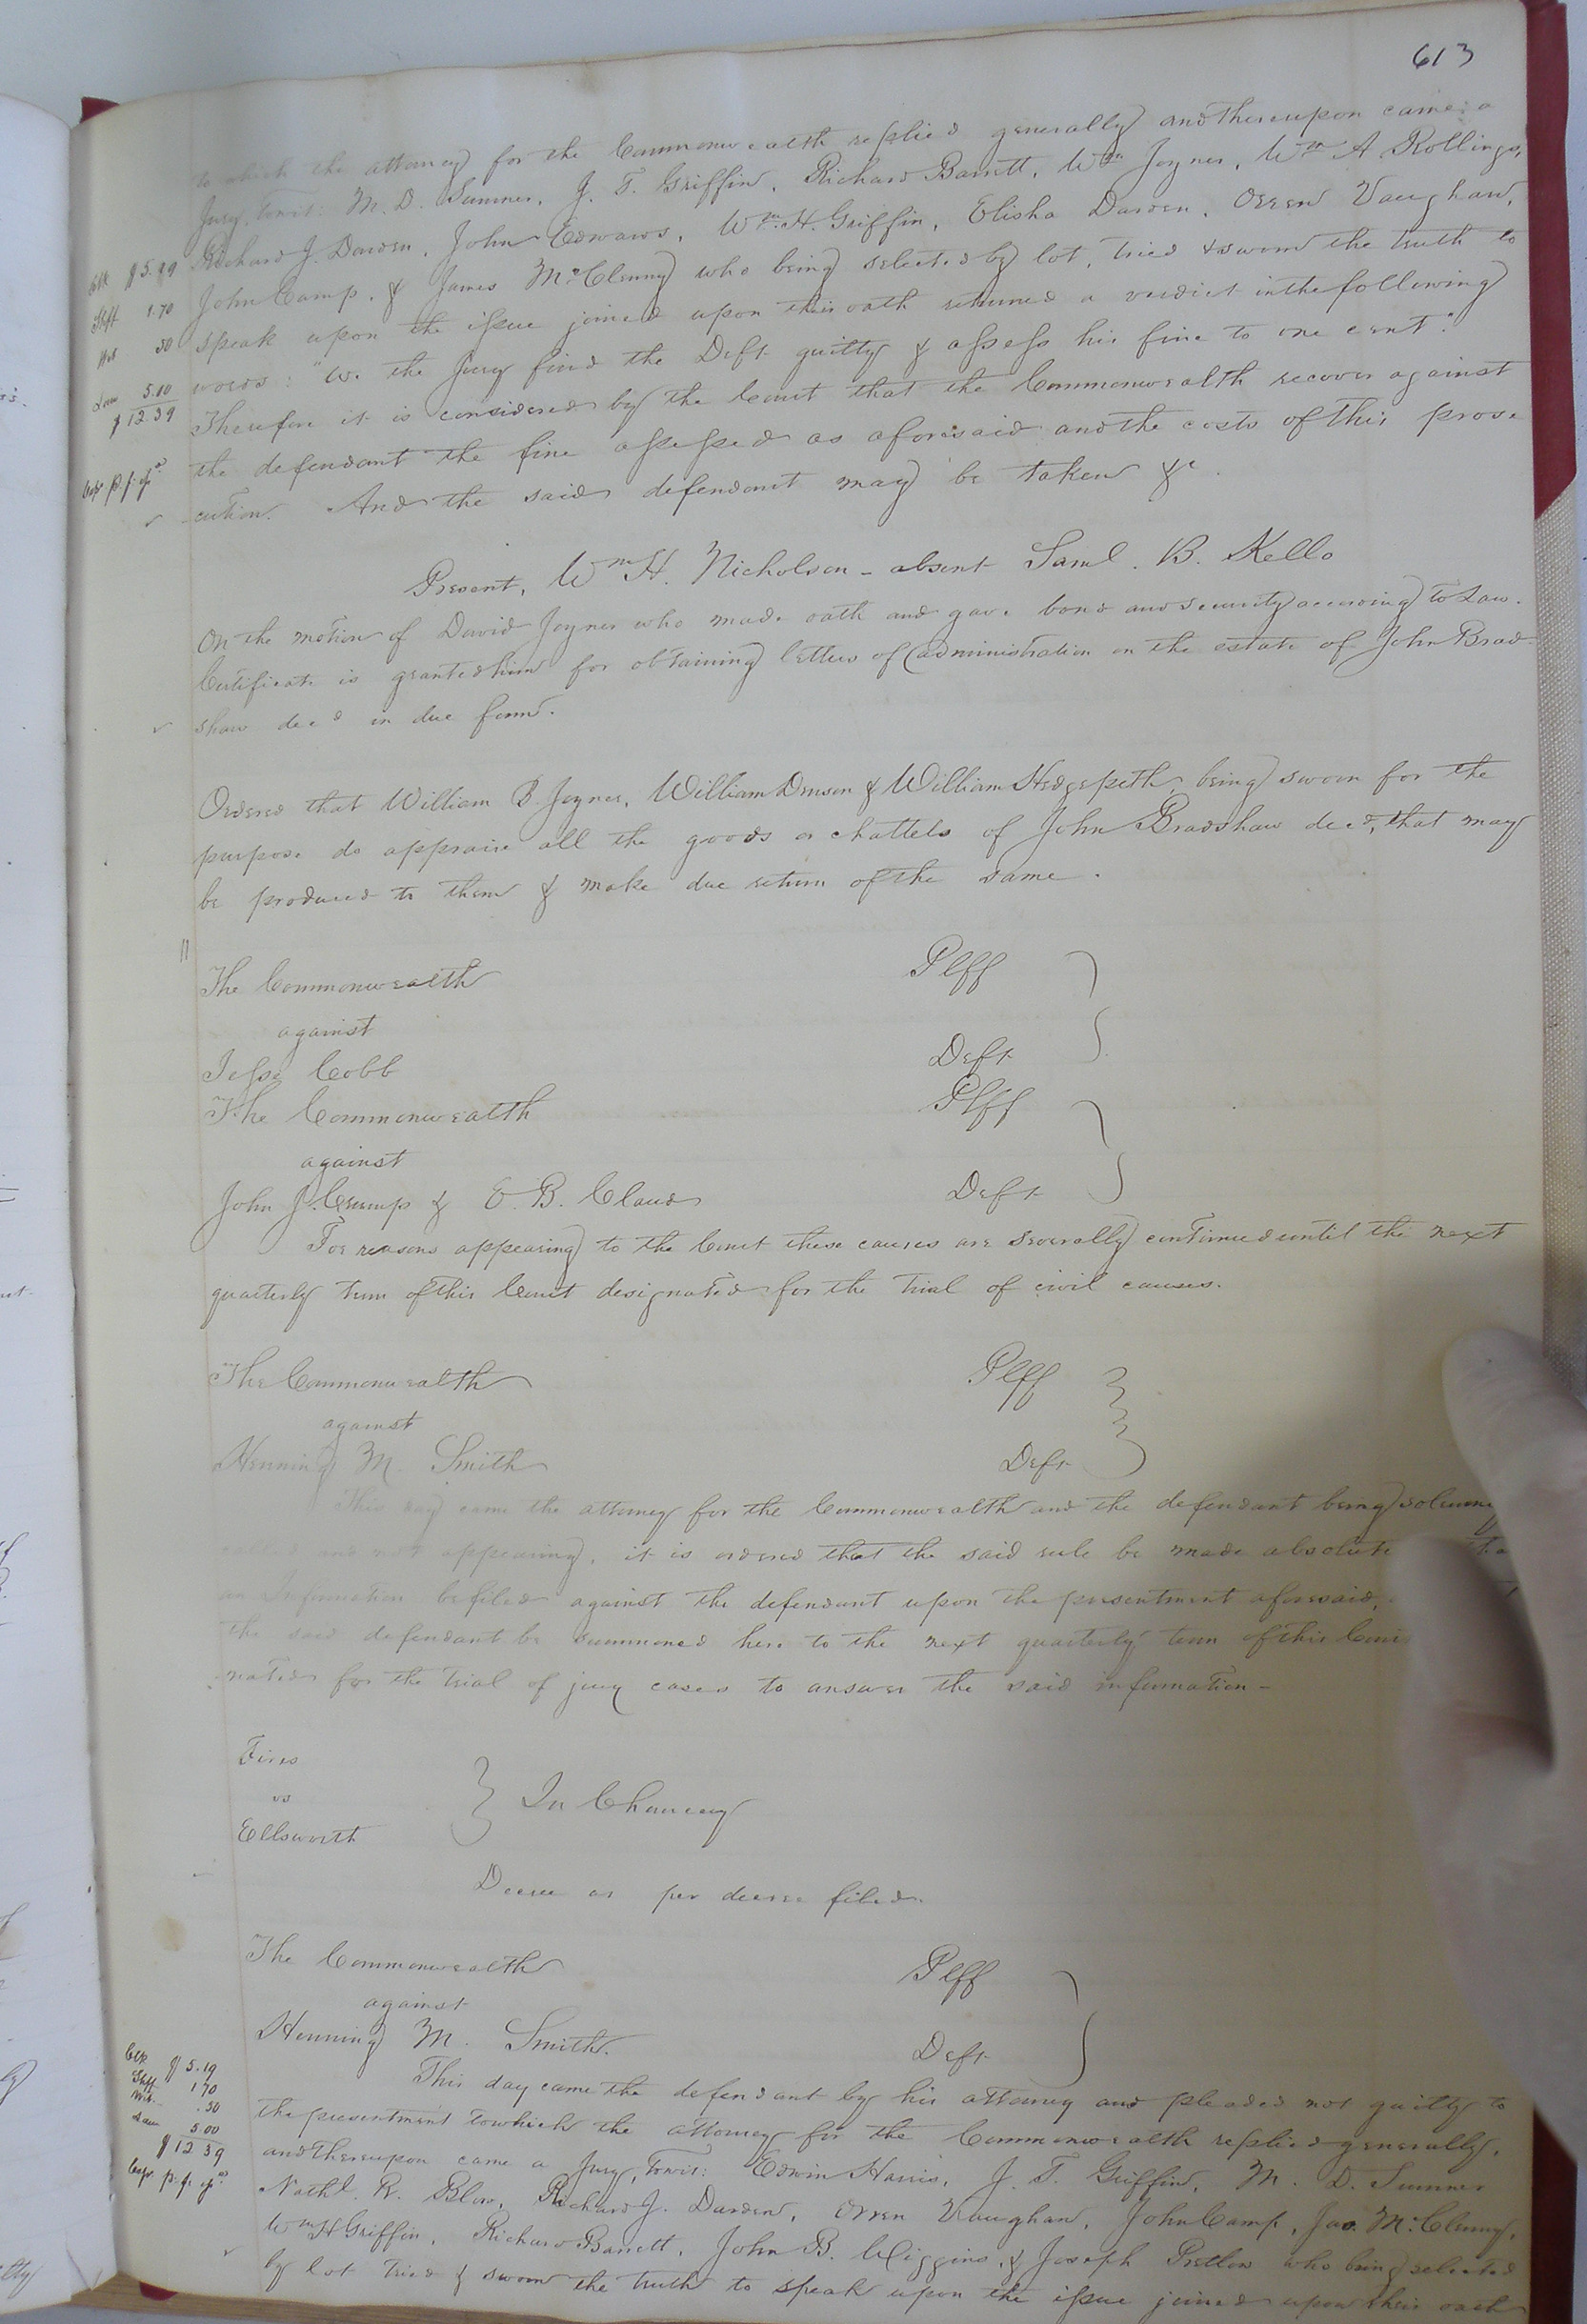 613
to which the attorney for the Commonwealth replied generally and thereupon came a
Jury, towit: M. D. Sumner, J. T. Griffin, Richard Barrett, Wm Joyner, Wm A Rollings,
Richard J. Darden, John Edwards, Wm. H. Griffin, Elisha Darden, Orren Vaughan,
John Camp, & James McClenny who being selected by lot, tried & sworn the truth to
speak upon the issue joined upon their oath returned a verdict in the following
words: "We the Jury find the Deft guilty & assess his fine to one cent."
Therefore it is considered by the Court that the Commonwealth recover against
the defendant the fine assessed as aforesaid and the costs of this prose
cution. And the said defendant may be taken &c.
Clk $5.19
Shff 1.70
Wit 50
Law 5.00
$12.39
Present, Wm H. Nicholson - absent Saml. B. Kello
On the motion of David Joyner who made oath and gave bond and security according to Law.
Certificate is granted him for obtaining letters of administration on the estate of John Brad-
shaw decd in due form.
Ordered that William B. Joyner, William Duson & William Hedgepeth, being sworn for the
purpose do appraise all the goods or chattels of John Bradshaw decd, that may
be produced to them & make due return of the same.
The Commonwealth Plff
against
Jesse Cobb Deft
The Commonwealth Plff
against
John J. Crump & E. B. Claud Deft
For reasons appearing to the Court these causes are severally continued until the next
quarterly term of this Court designated for the trial of civil causes.
The Commonwealth Plff
against
Henning M. Smith Deft
This day came the attorney for the Commonwealth and the defendant being solemn
called and not appearing, it is ordered that the said rule be made absolute
an Information be filed against the defendant upon the presentment aforesaid,
the said defendant be summoned here to the next quarterly term of this Cou
nated for the trial of jury cases to answer the said information -
Fires
vs
Ellsworth
In Chancery
Decree as per decree filed.
The Commonwealth Plff
against
Henning M. Smith. Deft
This day came the defendant by his attorney and pleaded not guilty to
the presentment to which the attorney for the Commonwealth replied generally,
and thereupon came a Jury, towit: Edwin Harris, J. T. Griffin, M. D. Sumner
Nathl. R. Blow, Richard J. Darden, Orren Vaughan, John Camp, Jas. McClenny,
Wm H Griffin, Richard Barrett, John B. Wiggins, & Joseph Pretlow who being selected
by lot tried & sworn the truth to speak upon the issue joined upon their oath
Clk $5.19
Shff 1.70
Wit. .50
Law 5.00
$12.39